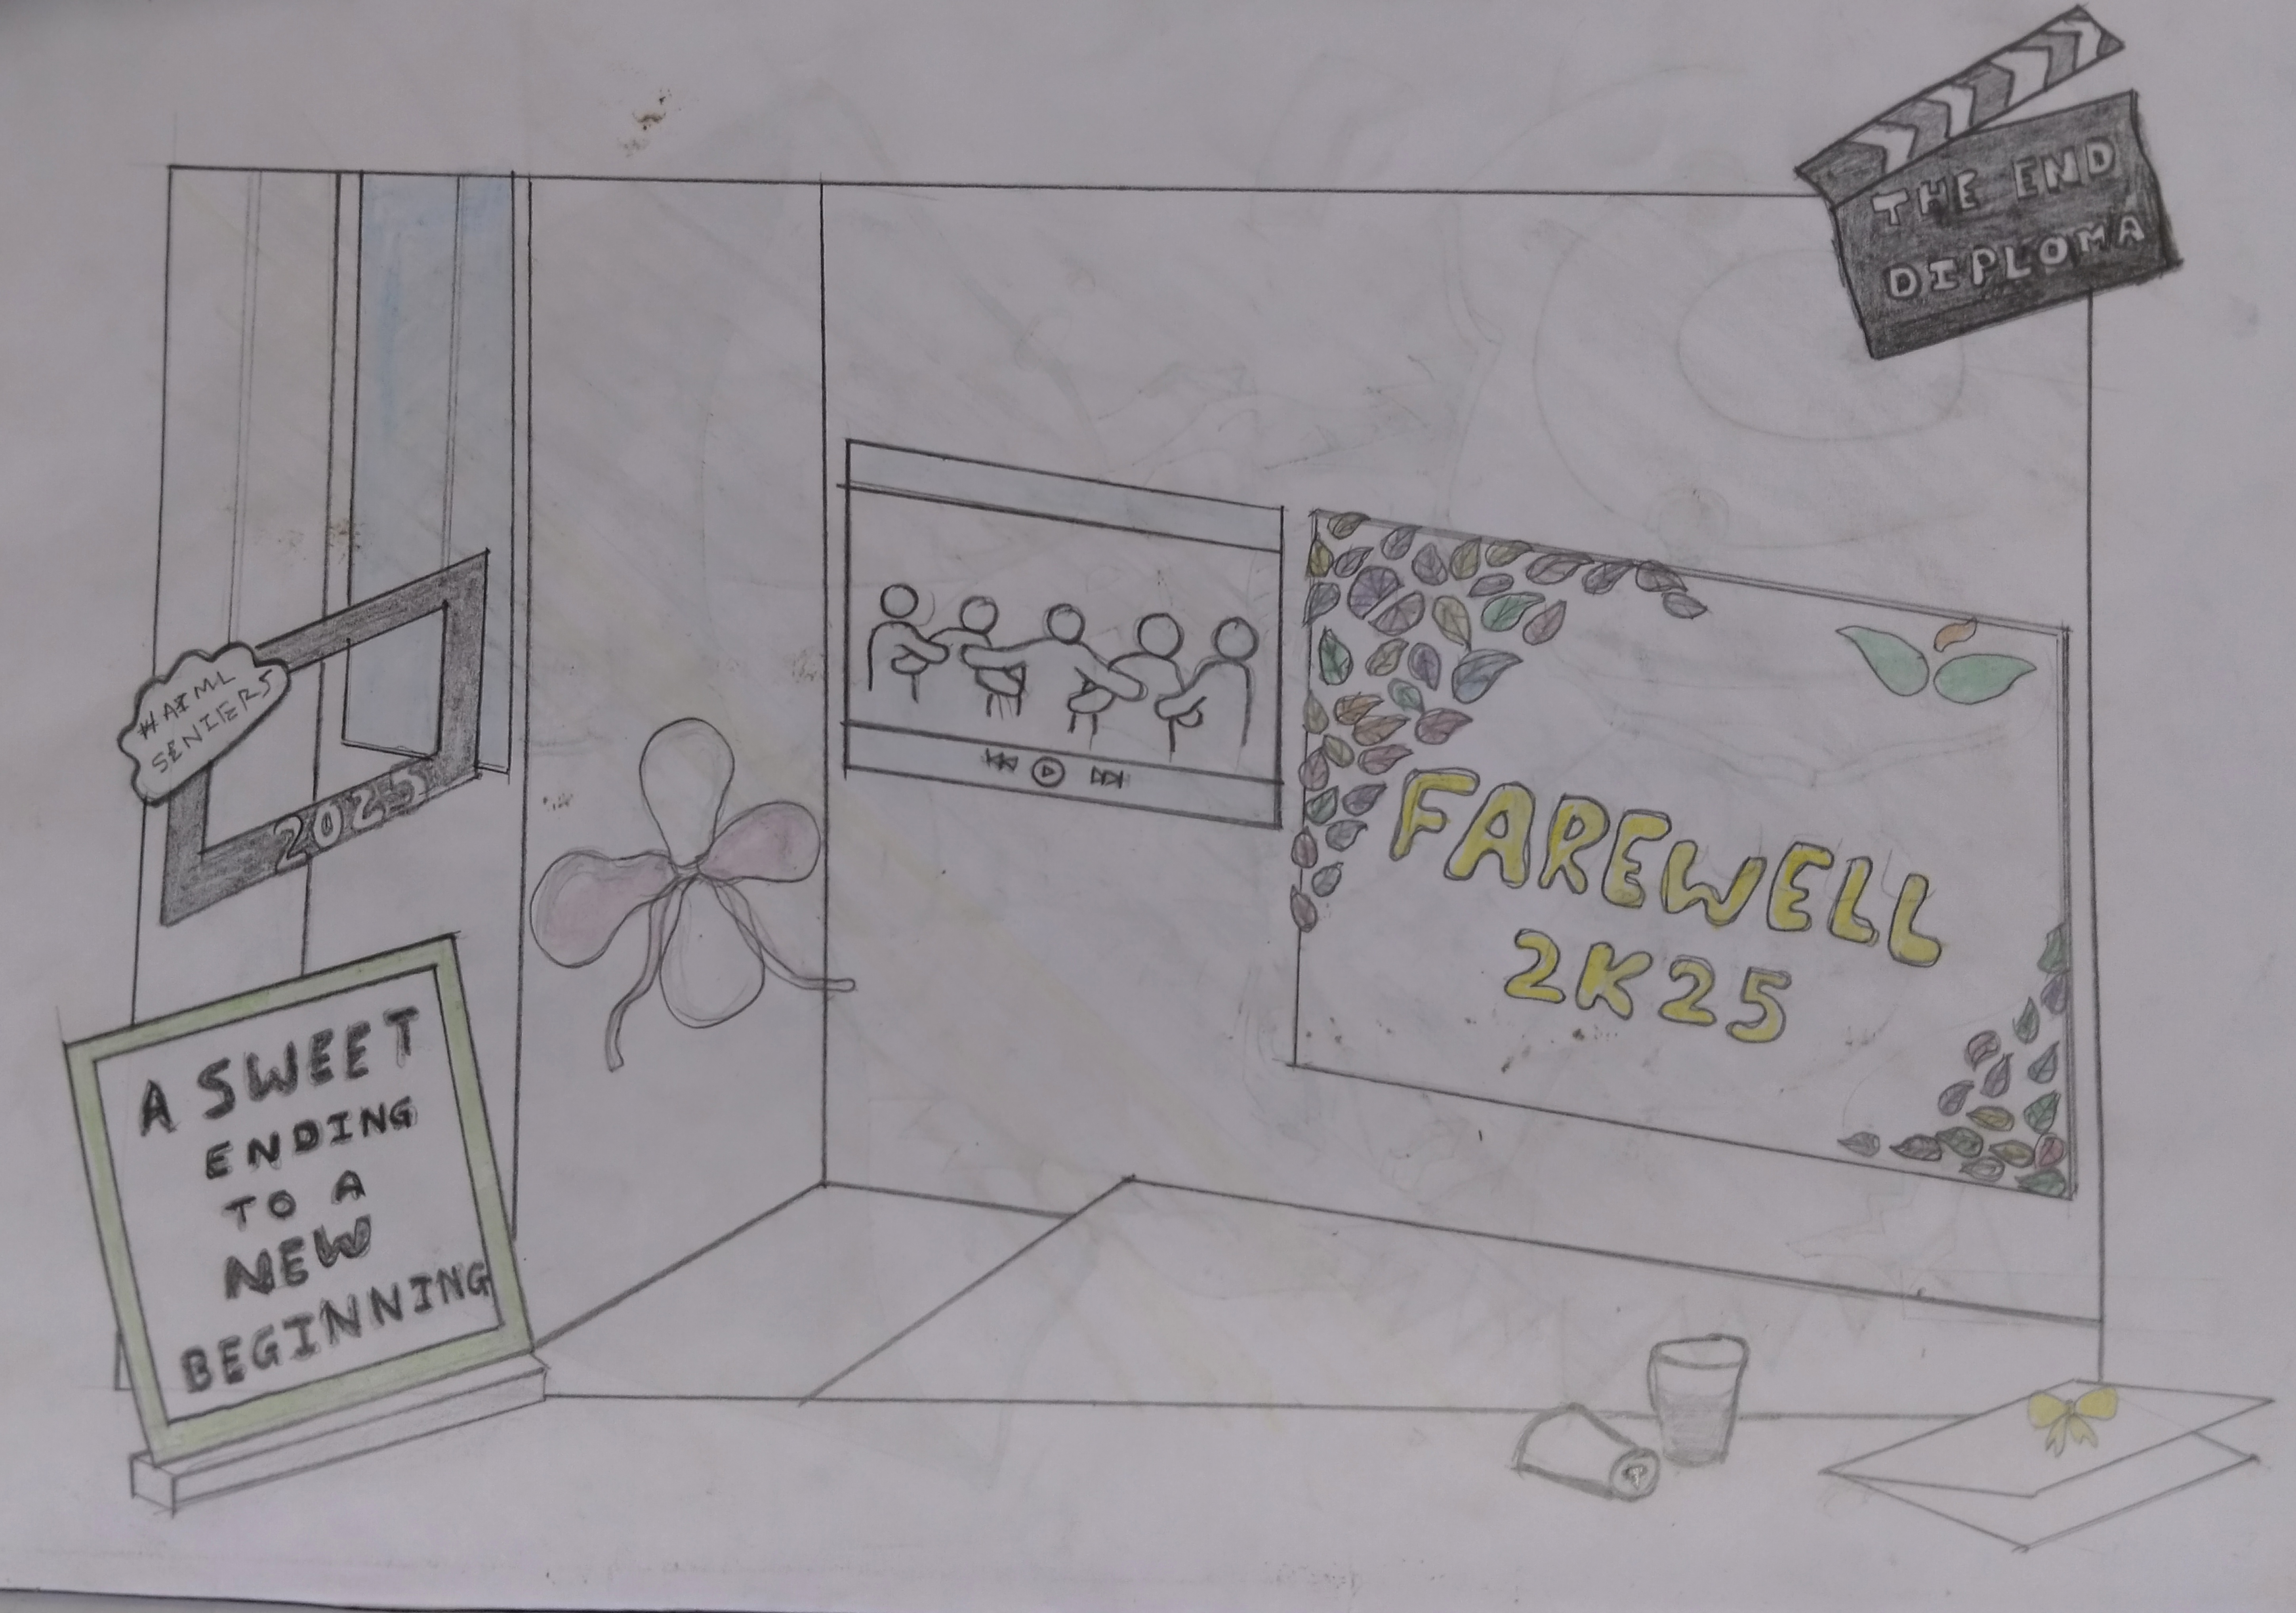 THE END
DIPLOMA
#AIML
SENIERS
2025
FAREWELL
2K25
A SWEET
ENDING
TO A
NEW
BEGINNING
T